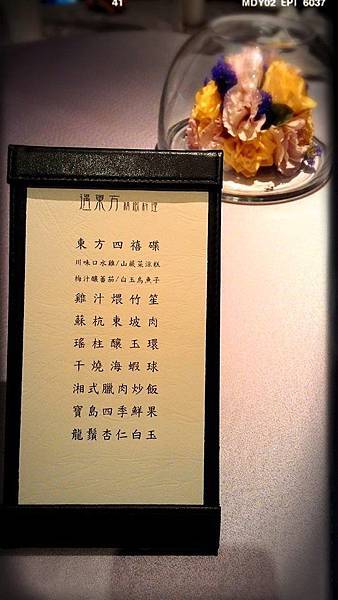 41 MDY02 EPI 6037
遇東方精緻料理
東方四禧碟
川味口水雞/山藏菜涼糕
梅汁釀蕃茄/白玉烏魚子
雞汁煨竹笙
蘇杭東坡肉
瑤柱釀玉環
干燒海蝦球
湘式臘肉炒飯
寶島四季鮮果
龍鬚杏仁白玉